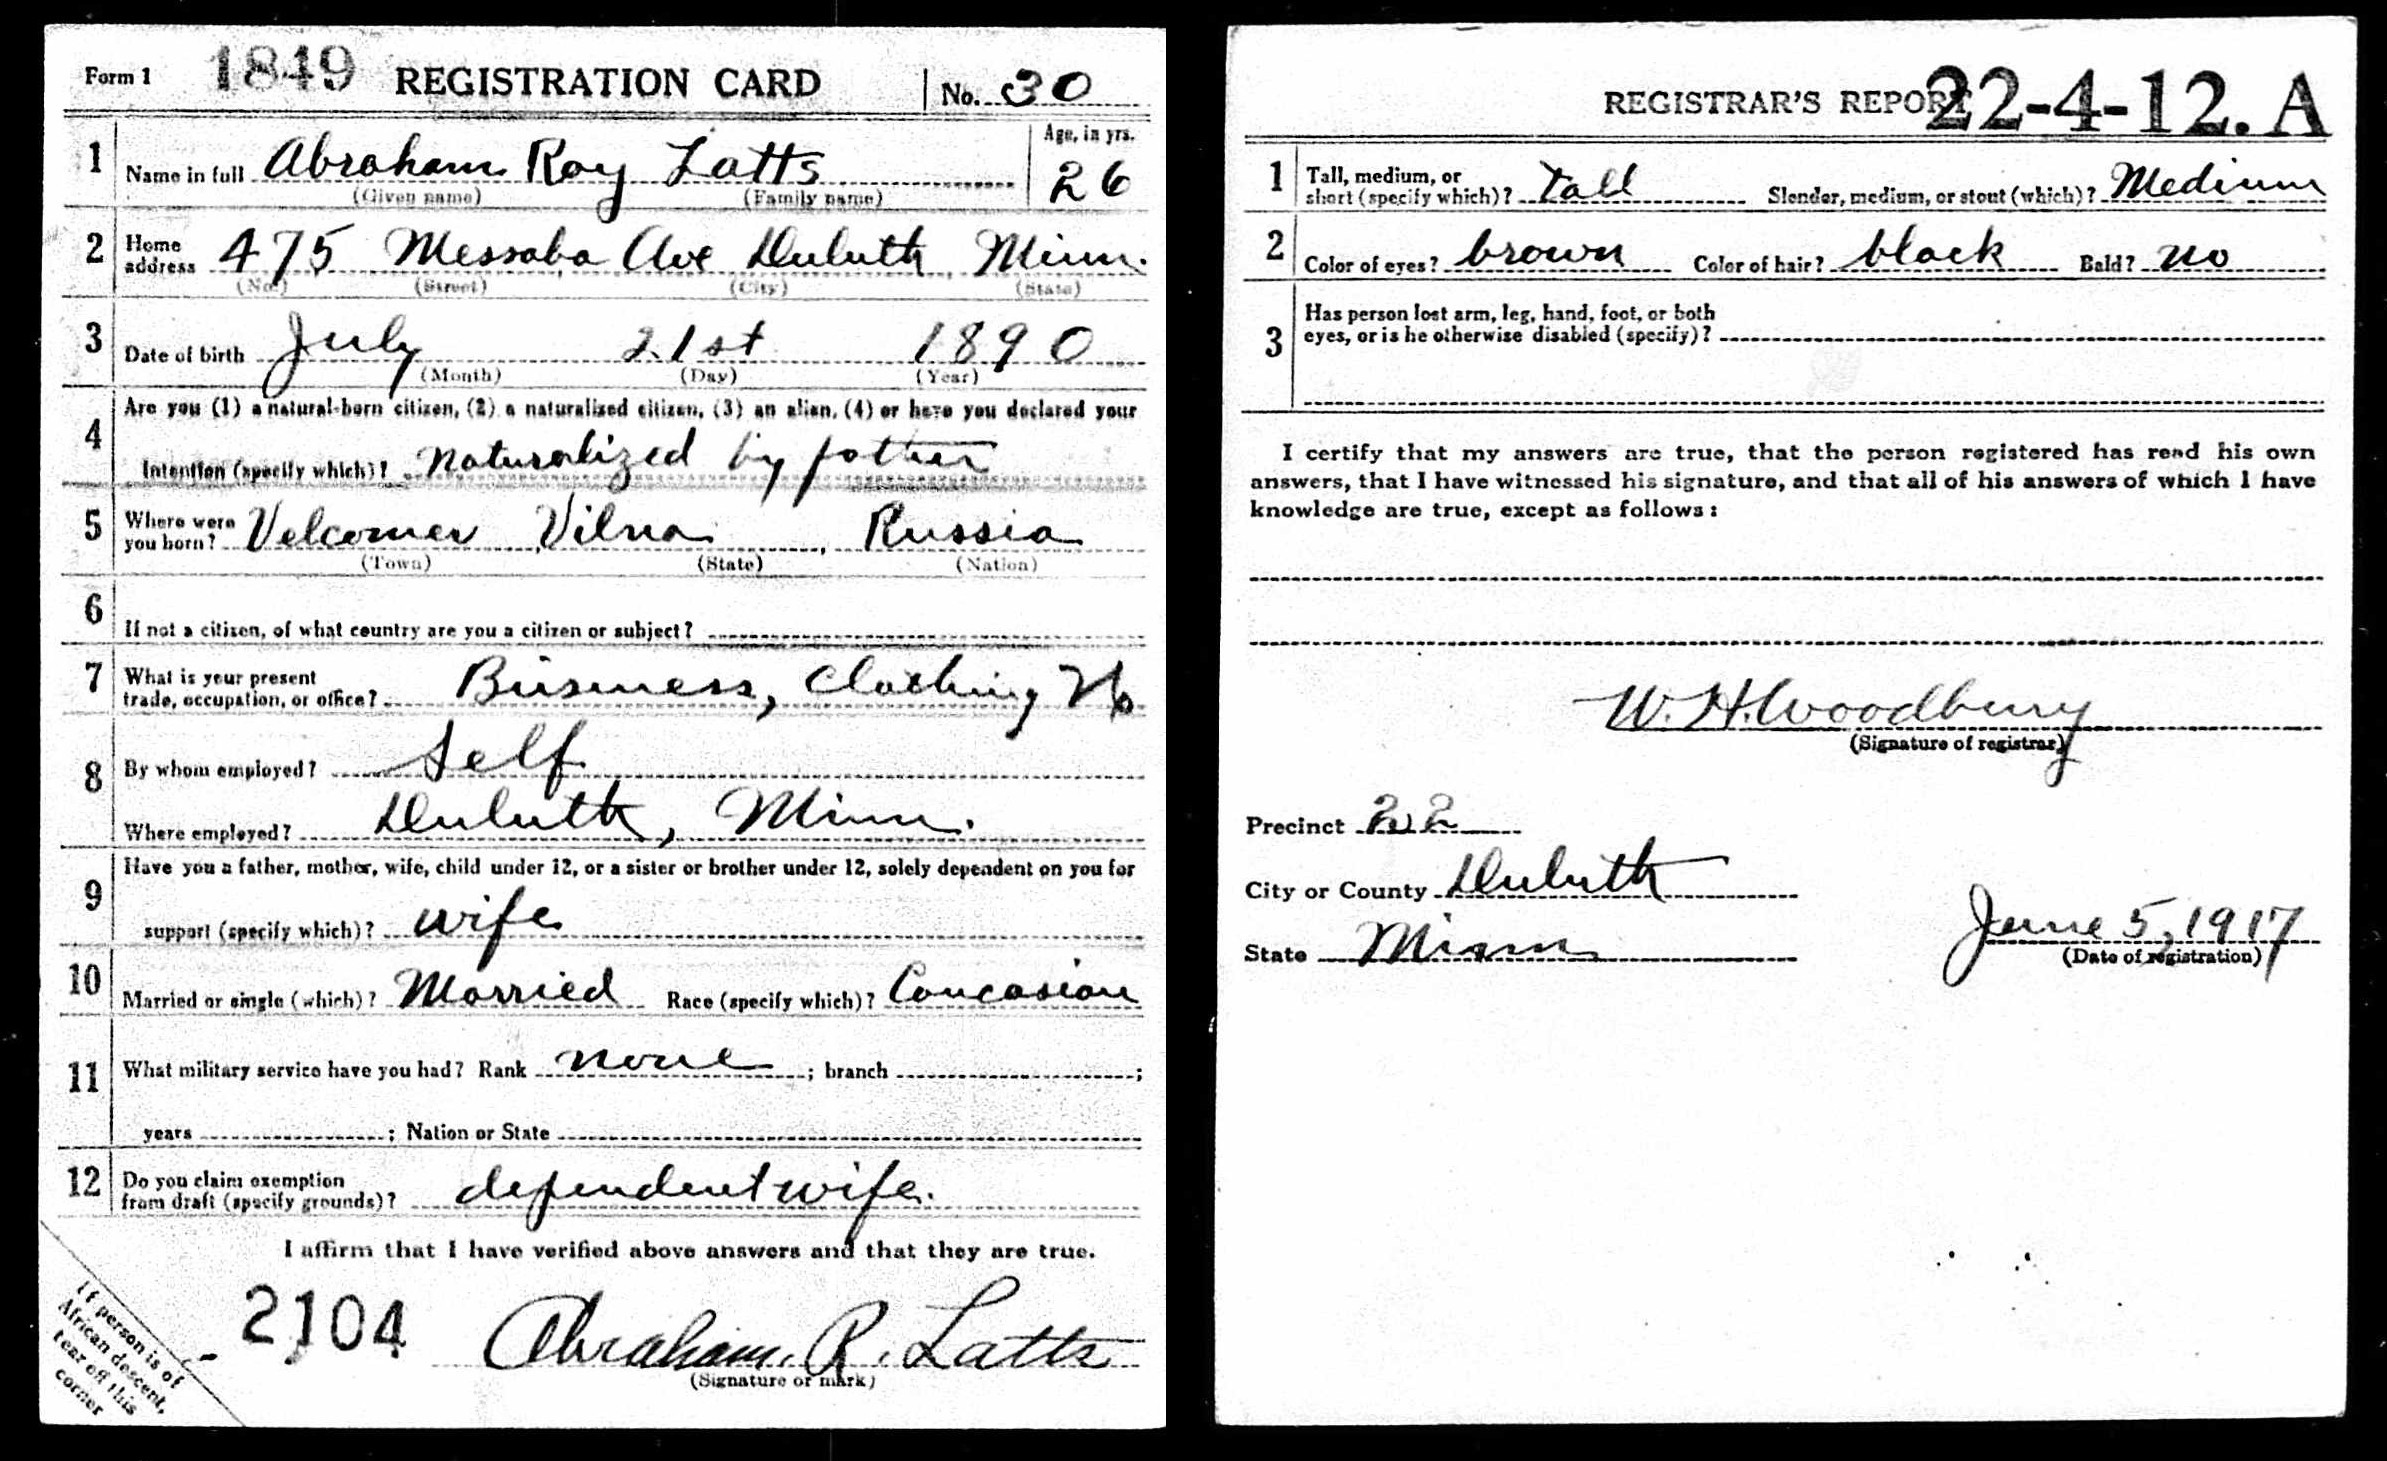 Form 1 1849 REGISTRATION CARD No. 30
1 Name in full Abraham Roy Latts Age, in yrs. 26
(Given name) (Family name)
2 Home address 475 Messaba Ave Duluth Minn.
(No.) (Street) (City) (State)
3 Date of birth July 21st 1890
(Month) (Day) (Year)
4 Are you (1) a natural-born citizen, (2) a naturalized citizen, (3) an alien, (4) or have you declared your
intention (specify which)? naturalized by father
5 Where were you born? Velcomer, Vilna, Russia
(Town) (State) (Nation)
6 If not a citizen, of what country are you a citizen or subject?
7 What is your present trade, occupation, or office? Business, Clothing
8 By whom employed? Self
Where employed? Duluth, Minn.
9 Have you a father, mother, wife, child under 12, or a sister or brother under 12, solely dependent on you for
support (specify which)? wife
10 Married or single (which)? Married Race (specify which)? Concasion
11 What military service have you had? Rank none ; branch ;
years ; Nation or State
12 Do you claim exemption from draft (specify grounds)? dependent wife.
I affirm that I have verified above answers and that they are true.
2104 Abraham R. Latts
(Signature or mark)
If person is of
African descent,
tear off this
corner
REGISTRAR'S REPORT 22-4-12. A
1 Tall, medium, or short (specify which)? Tall Slender, medium, or stout (which)? Medium
2 Color of eyes? brown Color of hair? black Bald? no
3 Has person lost arm, leg, hand, foot, or both
eyes, or is he otherwise disabled (specify)?
I certify that my answers are true, that the person registered has read his own
answers, that I have witnessed his signature, and that all of his answers of which I have
knowledge are true, except as follows:
W. H. Woodbury
(Signature of registrar)
Precinct 22
City or County Duluth
State Minn
June 5, 1917
(Date of registration)